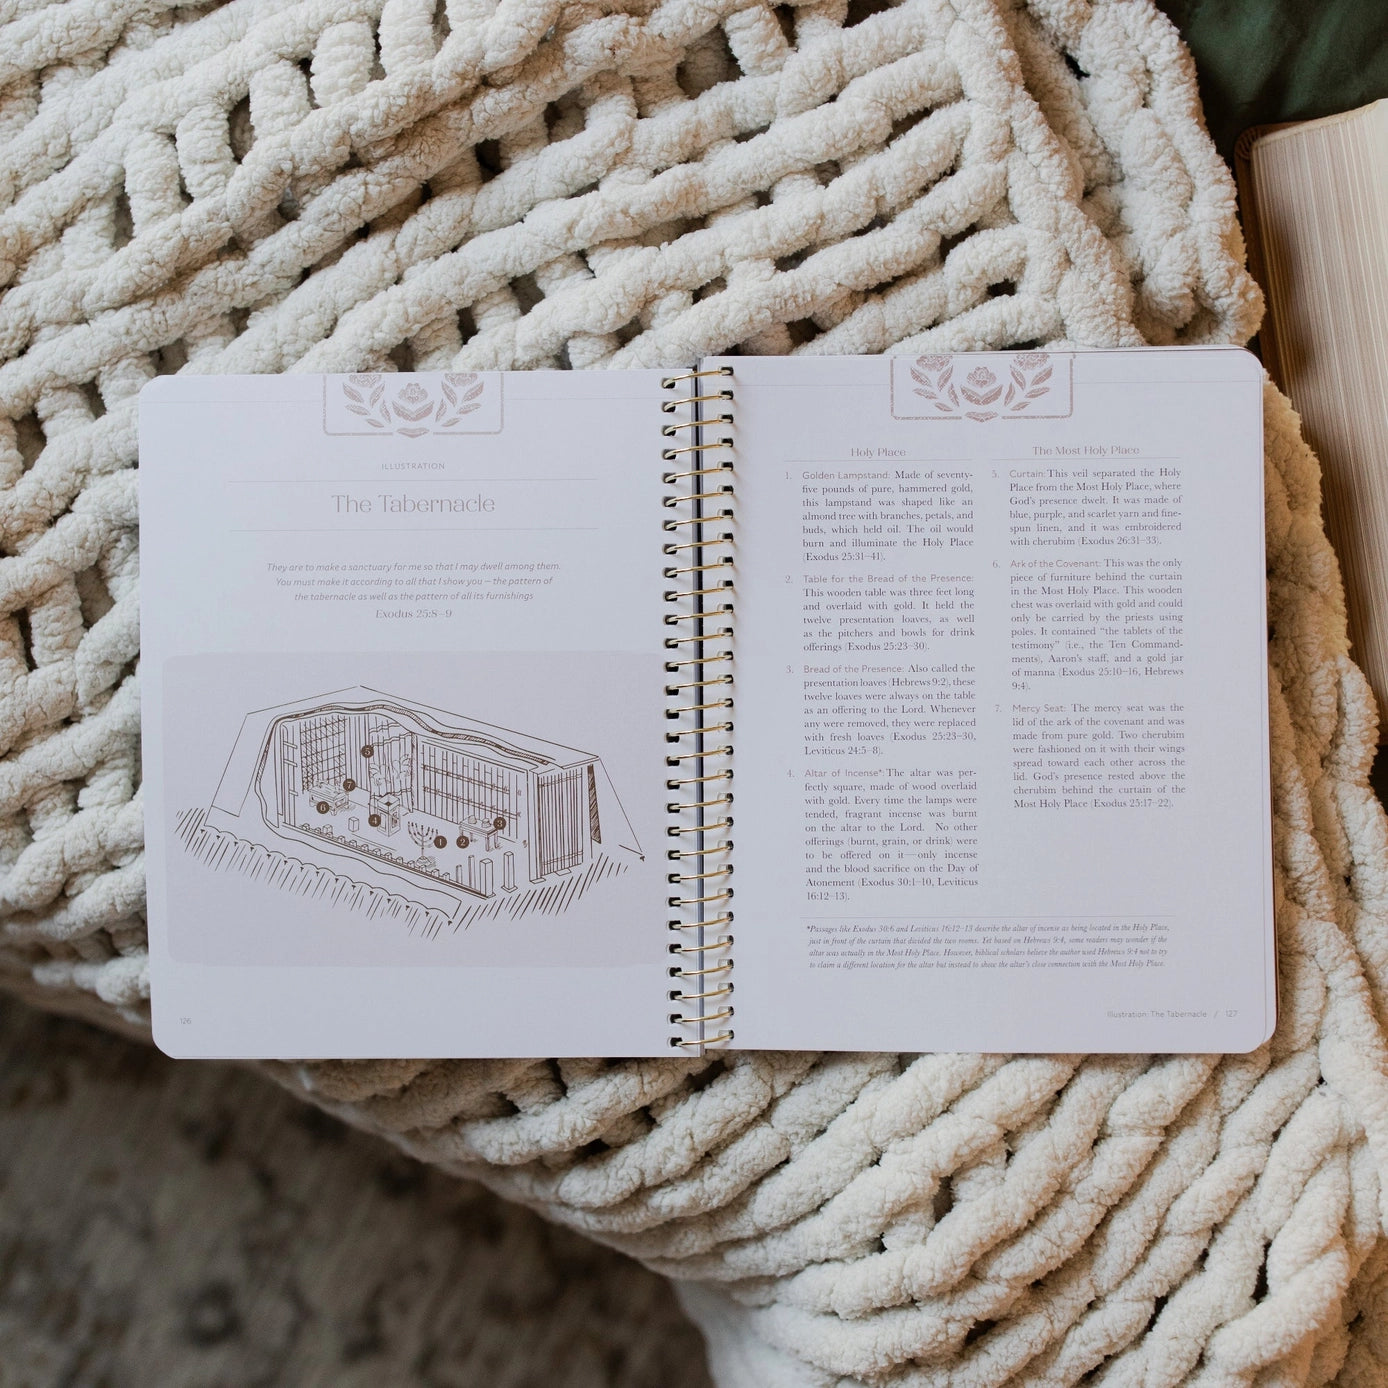 ILLUSTRATION
The Tabernacle
They are to make a sanctuary for me so that I may dwell among them.
You must make it according to all that I show you – the pattern of
the tabernacle as well as the pattern of all its furnishings
Exodus 25:8–9
5
7
6
4
3
1
2
126
Holy Place
1. Golden Lampstand: Made of seventy-
five pounds of pure, hammered gold,
this lampstand was shaped like an
almond tree with branches, petals, and
buds, which held oil. The oil would
burn and illuminate the Holy Place
(Exodus 25:31–41).
2. Table for the Bread of the Presence:
This wooden table was three feet long
and overlaid with gold. It held the
twelve presentation loaves, as well
as the pitchers and bowls for drink
offerings (Exodus 25:23–30).
3. Bread of the Presence: Also called the
presentation loaves (Hebrews 9:2), these
twelve loaves were always on the table
as an offering to the Lord. Whenever
any were removed, they were replaced
with fresh loaves (Exodus 25:23–30,
Leviticus 24:5–8).
4. Altar of Incense*: The altar was per-
fectly square, made of wood overlaid
with gold. Every time the lamps were
tended, fragrant incense was burnt
on the altar to the Lord. No other
offerings (burnt, grain, or drink) were
to be offered on it—only incense
and the blood sacrifice on the Day of
Atonement (Exodus 30:1–10, Leviticus
16:12–13).
The Most Holy Place
5. Curtain: This veil separated the Holy
Place from the Most Holy Place, where
God's presence dwelt. It was made of
blue, purple, and scarlet yarn and fine-
spun linen, and it was embroidered
with cherubim (Exodus 26:31–33).
6. Ark of the Covenant: This was the only
piece of furniture behind the curtain
in the Most Holy Place. This wooden
chest was overlaid with gold and could
only be carried by the priests using
poles. It contained “the tablets of the
testimony” (i.e., the Ten Command-
ments), Aaron's staff, and a gold jar
of manna (Exodus 25:10–16, Hebrews
9:4).
7. Mercy Seat: The mercy seat was the
lid of the ark of the covenant and was
made from pure gold. Two cherubim
were fashioned on it with their wings
spread toward each other across the
lid. God's presence rested above the
cherubim behind the curtain of the
Most Holy Place (Exodus 25:17–22).
*Passages like Exodus 30:6 and Leviticus 16:12–13 describe the altar of incense as being located in the Holy Place,
just in front of the curtain that divided the two rooms. Yet based on Hebrews 9:4, some readers may wonder if the
altar was actually in the Most Holy Place. However, biblical scholars believe the author used Hebrews 9:4 not to try
to claim a different location for the altar but instead to show the altar's close connection with the Most Holy Place.
Illustration: The Tabernacle / 127